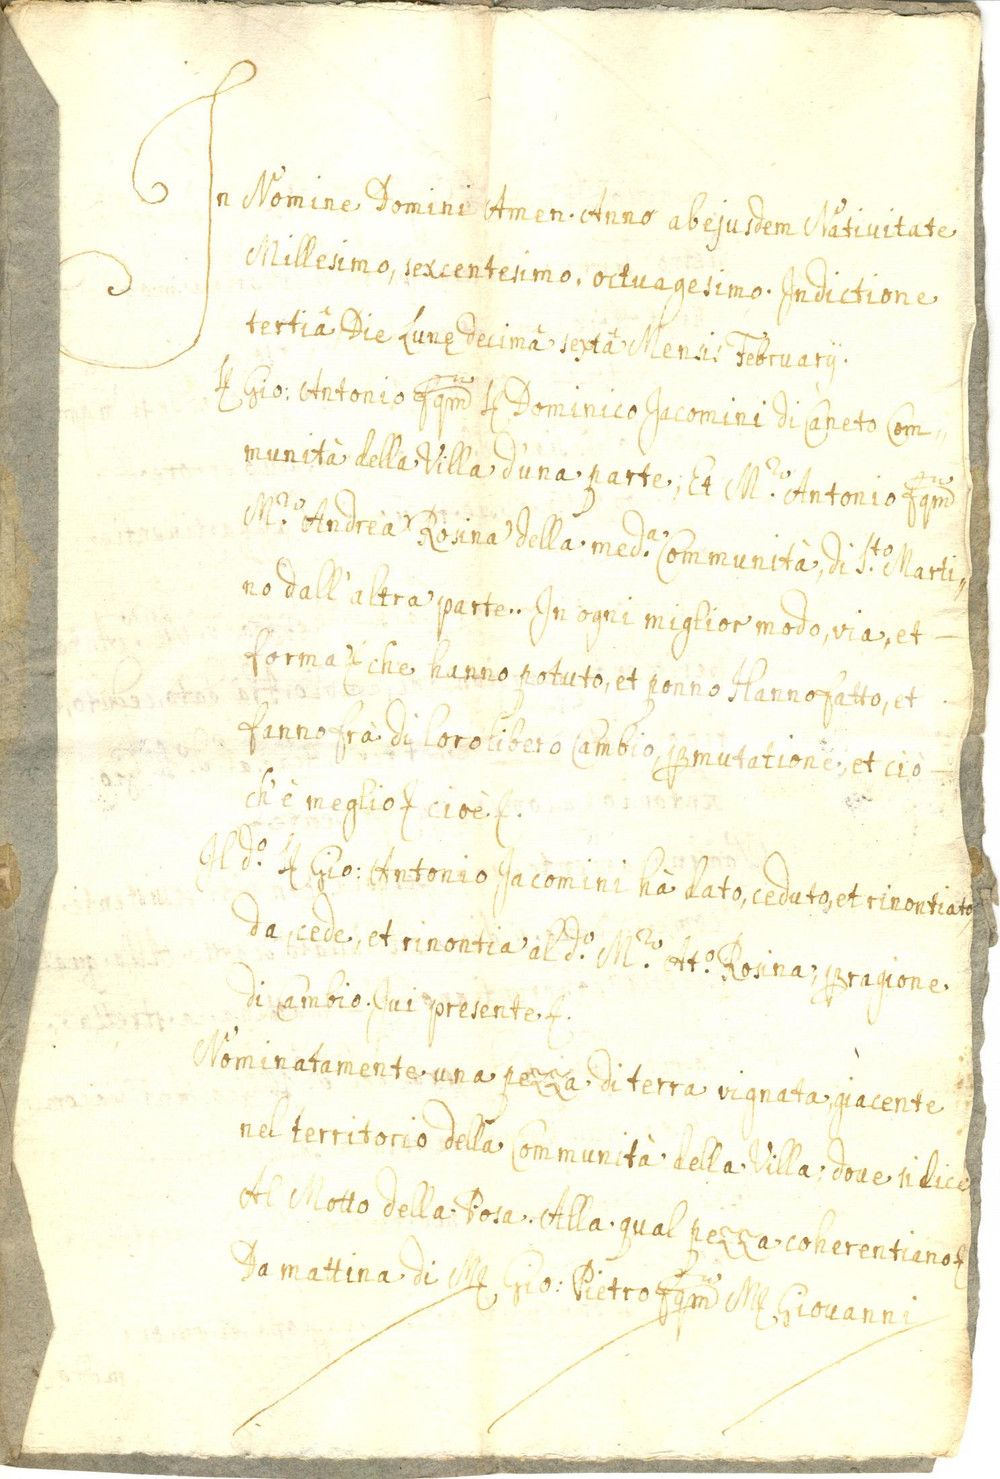 In Nomine Domini Amen. Anno ab ejusdem Nativitate
Millesimo, sexcentesimo, octuagesimo. Indictione
tertiâ Die Lunę decimâ sextâ Mensis February.
Gio: Antonio fqm Dominico Jacomini di Caneto Com„
munità della Villa d'una parte; Et M.ro Antonio fqm
M.ro Andrea Rosina della med.a Communità, di S.to Marti„
no dall'altra parte.. In ogni miglior modo, via, et
forma che hanno potuto, et ponno Hanno fatto, et
fanno frà di loro libero Cambio, permutatione, et ciò
ch'è meglio cioè.
Il d.o Gio: Antonio Jacomini hà dato, ceduto, et rinontiato,
da, cede, et rinontia al d.o M.ro Att.o Rosina; per ragione
di Cambio. Ivi presente.
Nominatamente una pezza di terra vignata, giacente
nel territorio della Communità della Villa; dove si dice
Al Motto della Posa. Alla qual pezza coherentiano
Da mattina di Gio: Pietro fqm Giovanni